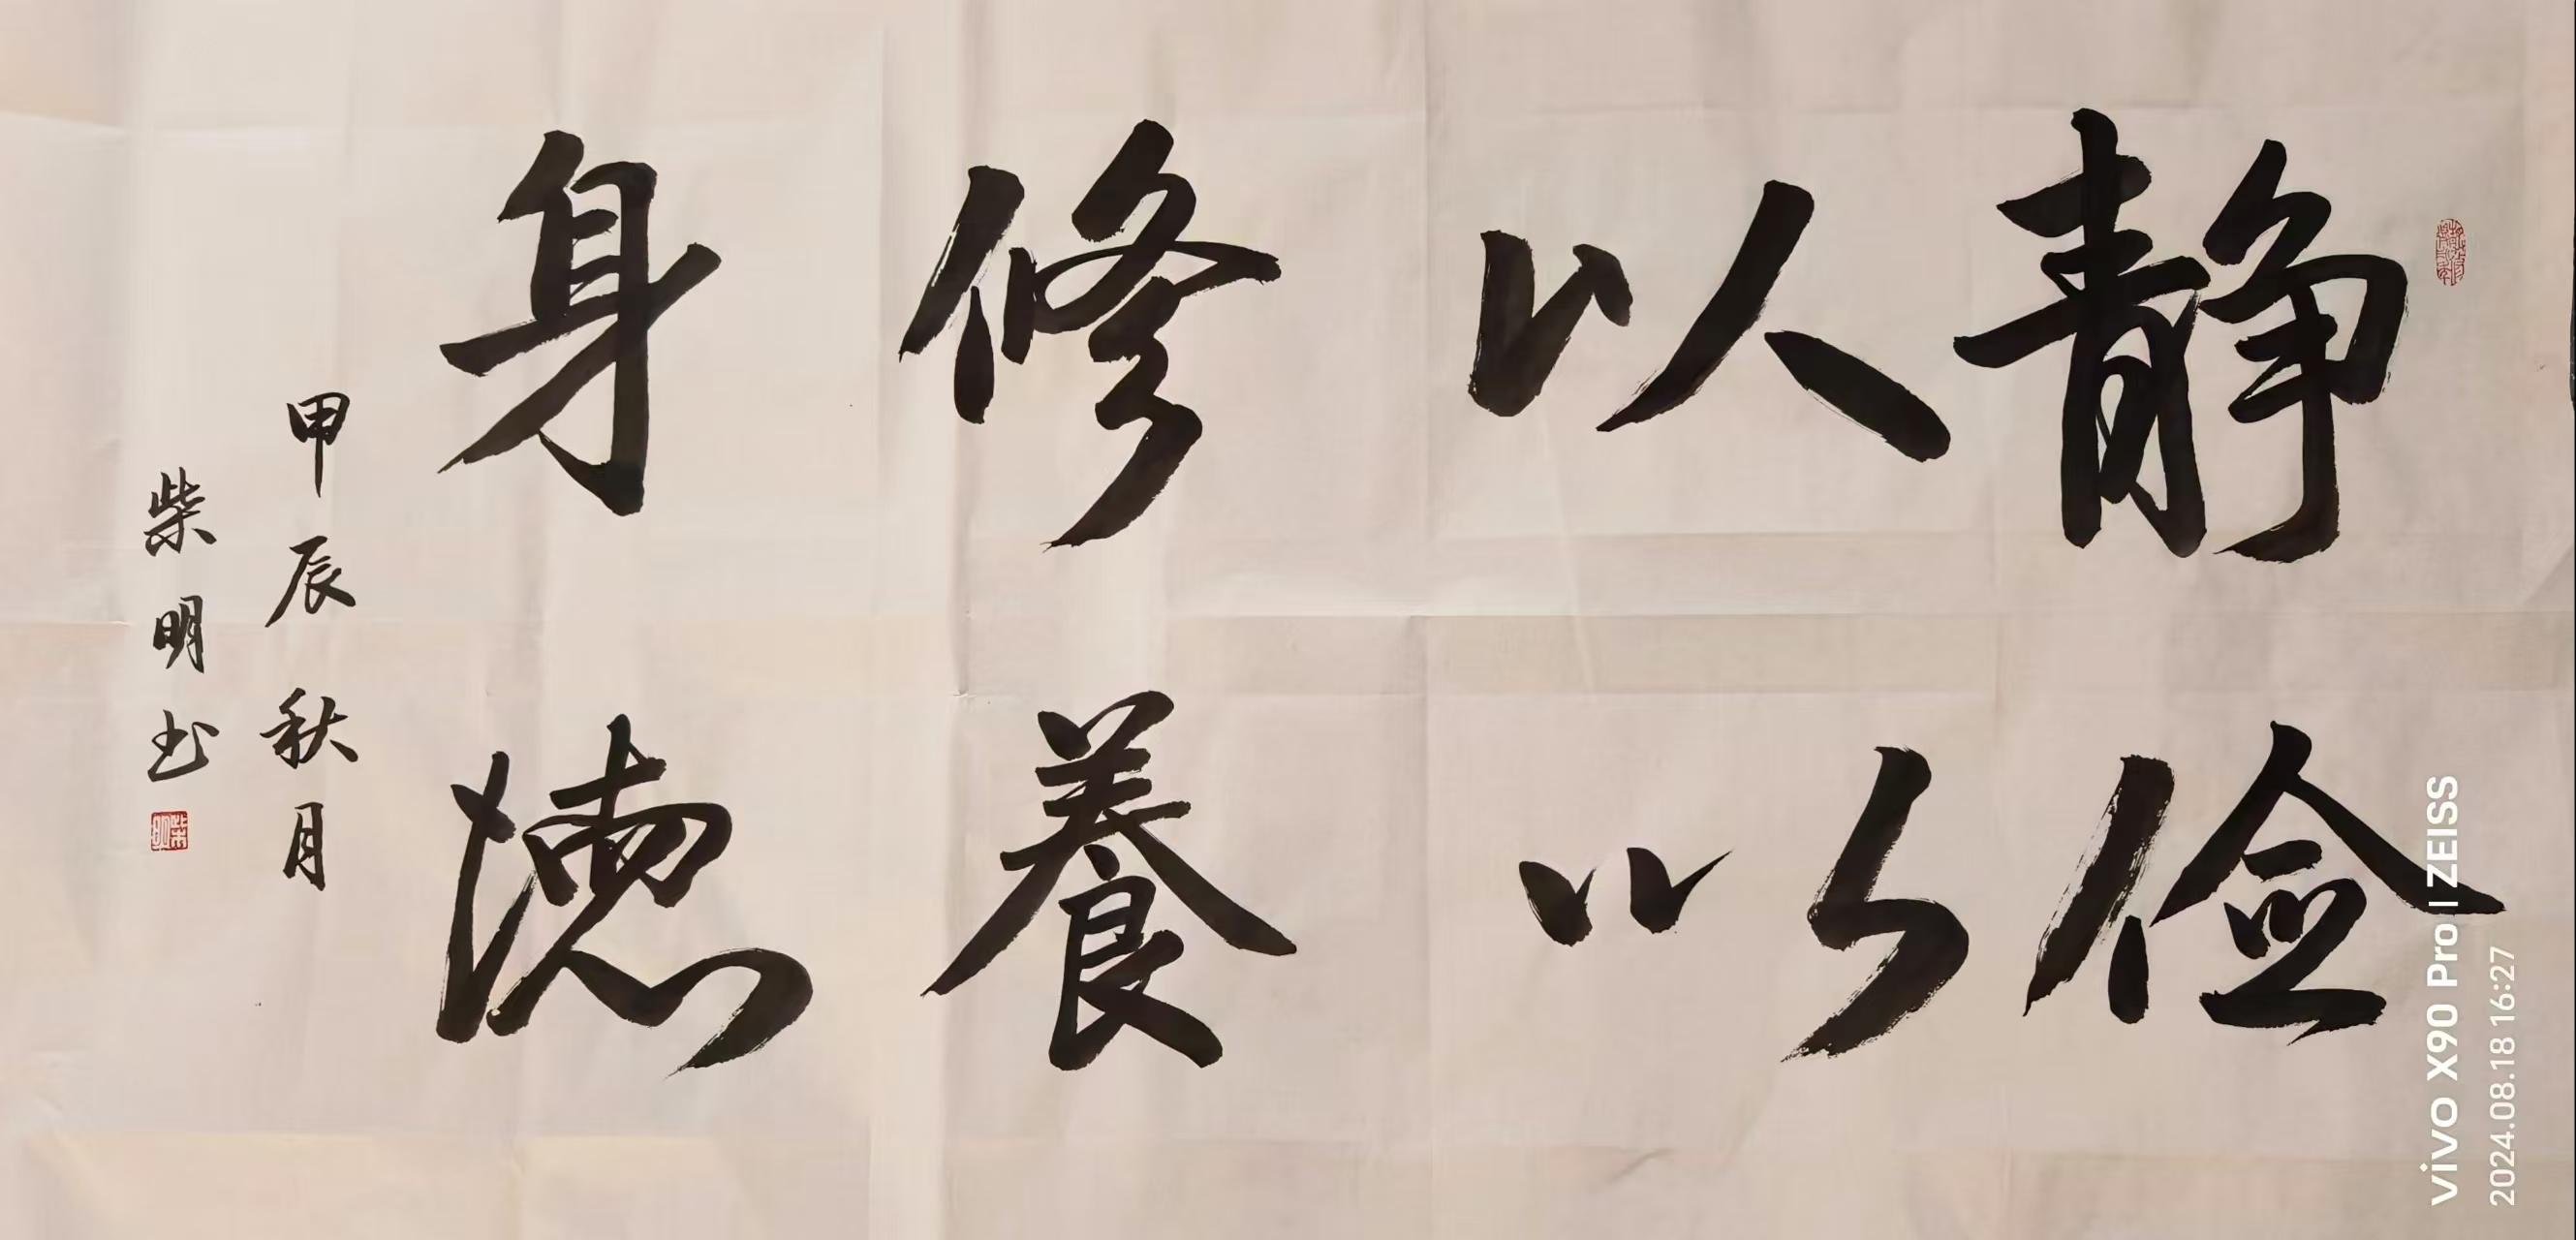 静以修身
俭以養德
甲辰秋月
柴明书
柴明
vivo X90 Pro | ZEISS
2024.08.18 16:27